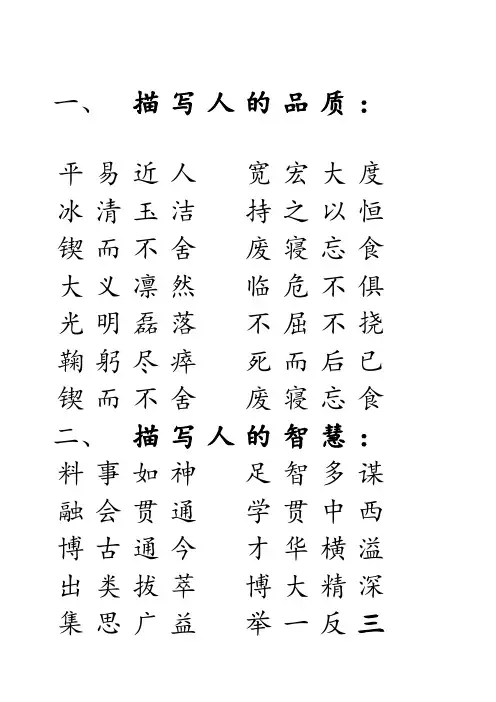 一、 描写人的品质：
平易近人 宽宏大度
冰清玉洁 持之以恒
锲而不舍 废寝忘食
大义凛然 临危不俱
光明磊落 不屈不挠
鞠躬尽瘁 死而后已
锲而不舍 废寝忘食
二、 描写人的智慧：
料事如神 足智多谋
融会贯通 学贯中西
博古通今 才华横溢
出类拔萃 博大精深
集思广益 举一反三